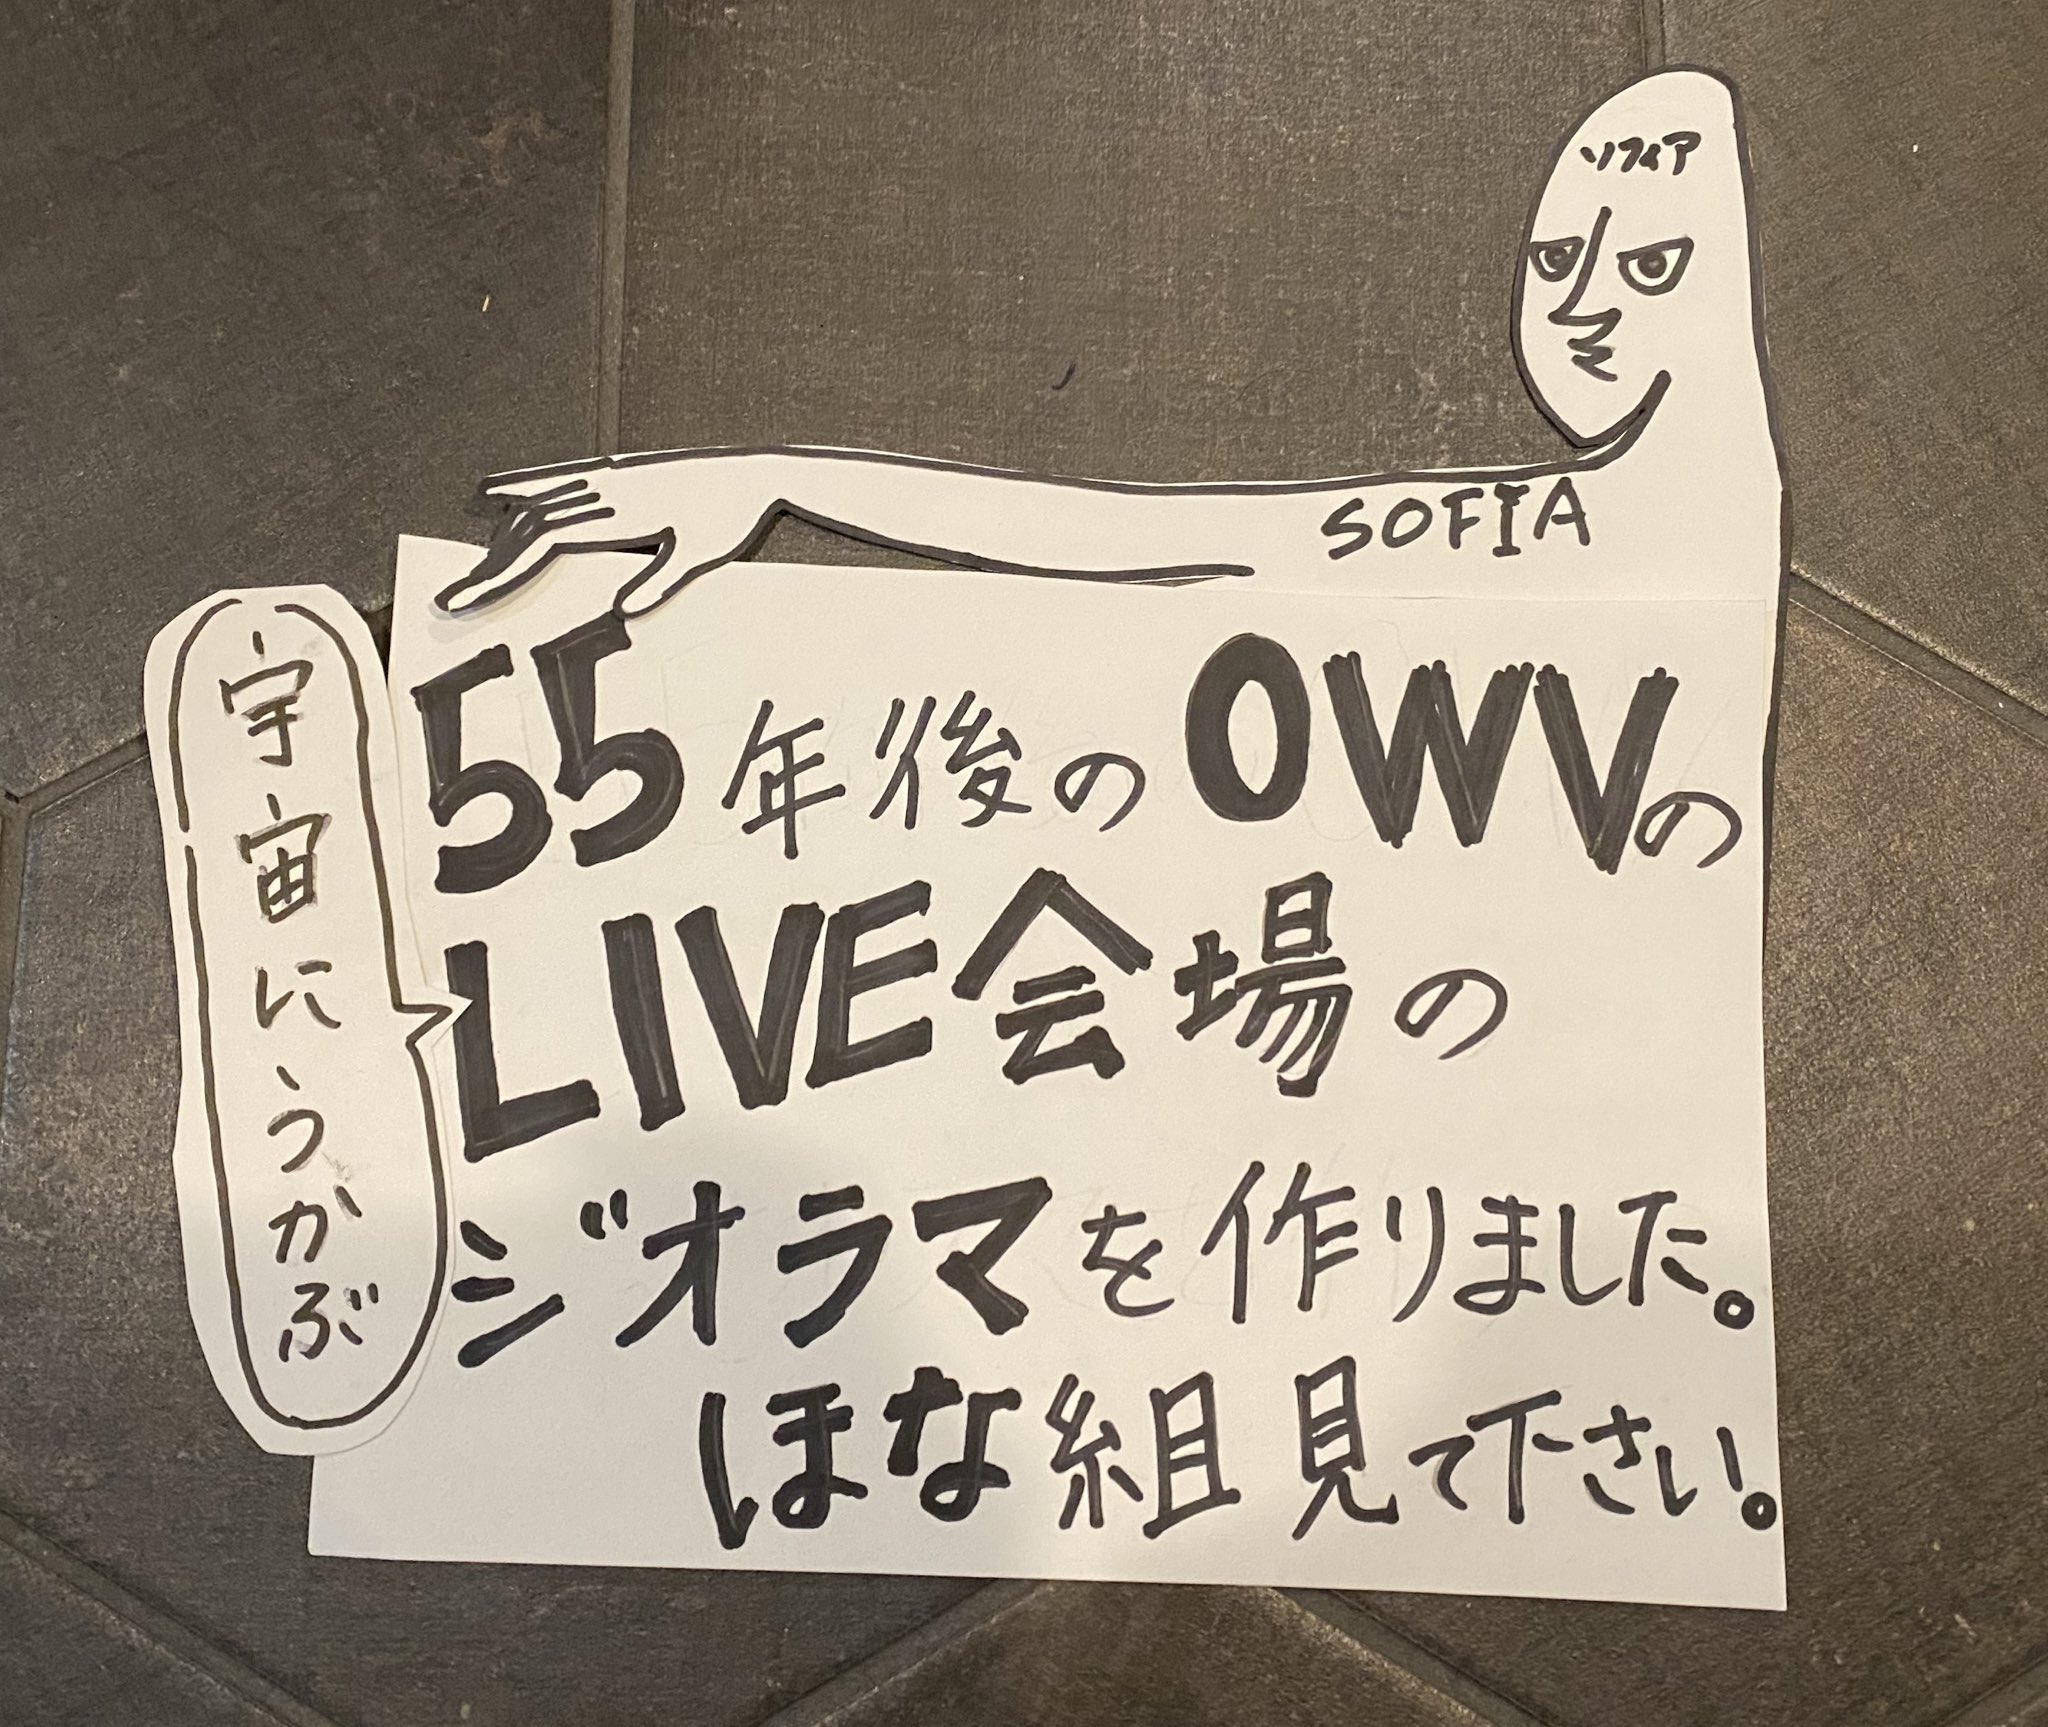 ソフィア
SOFIA
55年後のOWVの
LIVE会場の
ジオラマを作りました。
ほな組見て下さい。
宇宙にうかぶ